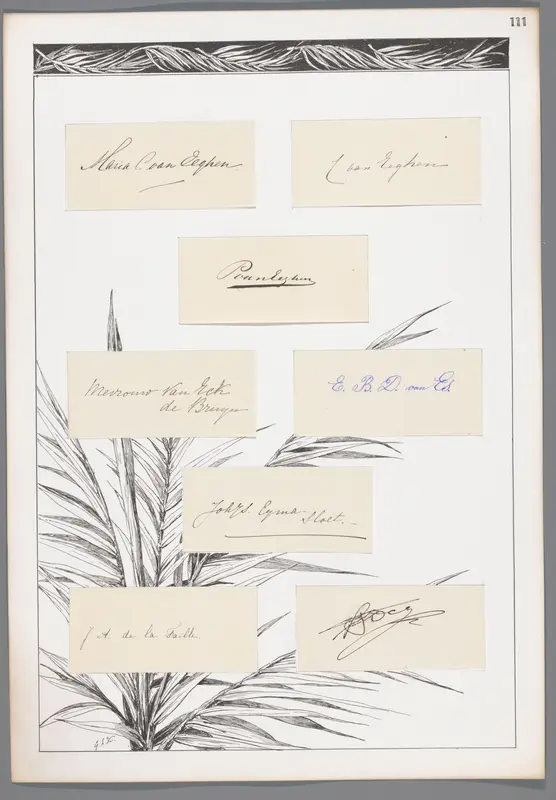 111
Maria C. van Eeghen
C van Eeghen
P van Eeghen
Mevrouw Van Eck
de Bruyn
E. B. D. van Ed.
Joh's. Eyma
Sloet.
J A. de la Faille.